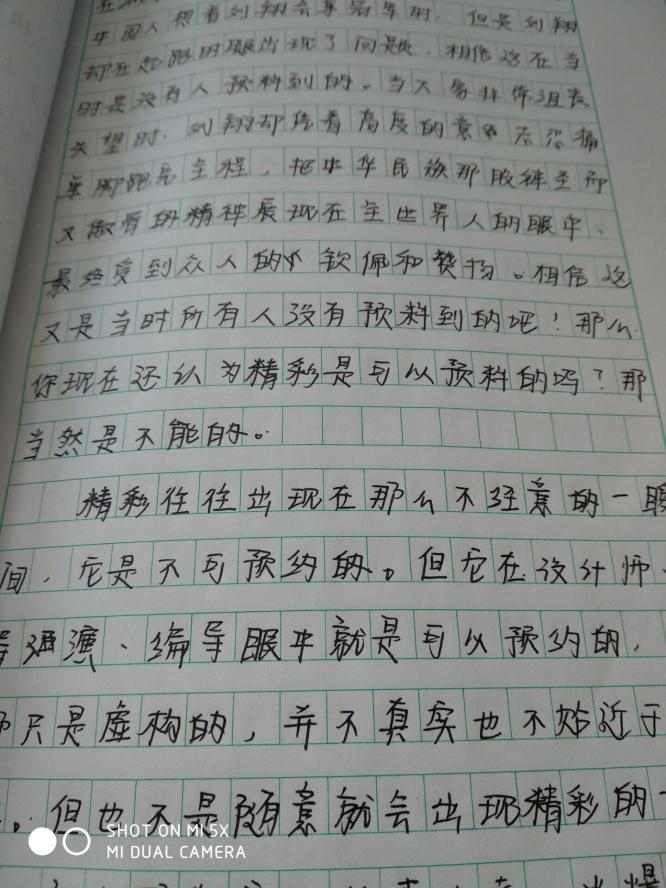 中国人想着刘翔会拿冠军时，但是刘翔
却在起跑时跟出现了问题，相信这在当
时是没有人预料到的。当大家
失望时，刘翔却凭着高度的意
单脚跳完全程，把中华民族那股神圣而
又傲骨的精神展现在全世界人的眼中、
最终受到众人的钦佩和赞扬。相信这
又是当时所有人没有预料到的吧！那么
你现在还认为精彩是可以预料的吗？那
当然是不能的。
精彩往往出现在那么不经意的一瞬
间，它是不可预约的。但它在设计师、
演、编导眼中就是可以预约的，
只是虚构的，并不真实也不贴近于
。但也不是随意就会出现精彩的
SHOT ON MI 5X
MI DUAL CAMERA